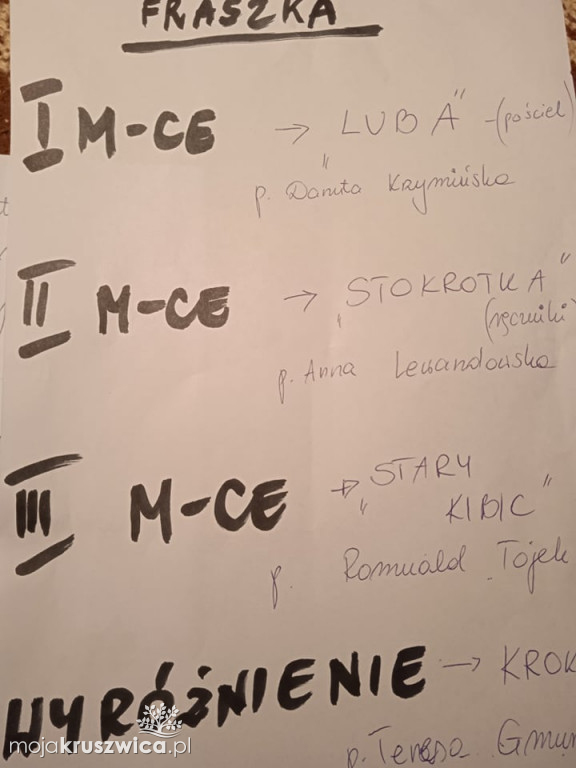 FRASZKA
I M-CE → „LUBA” - (pościel)
p. Danuta Kaymińska
II M-CE → „STOKROTKA”
(ręczniki)
p. Anna Lewandowska
III M-CE → „STARY
KIBIC”
p. Romuald Tojek
WYRÓŻNIENIE → KROK
p. Teresa Gmur
mojakruszwica.pl